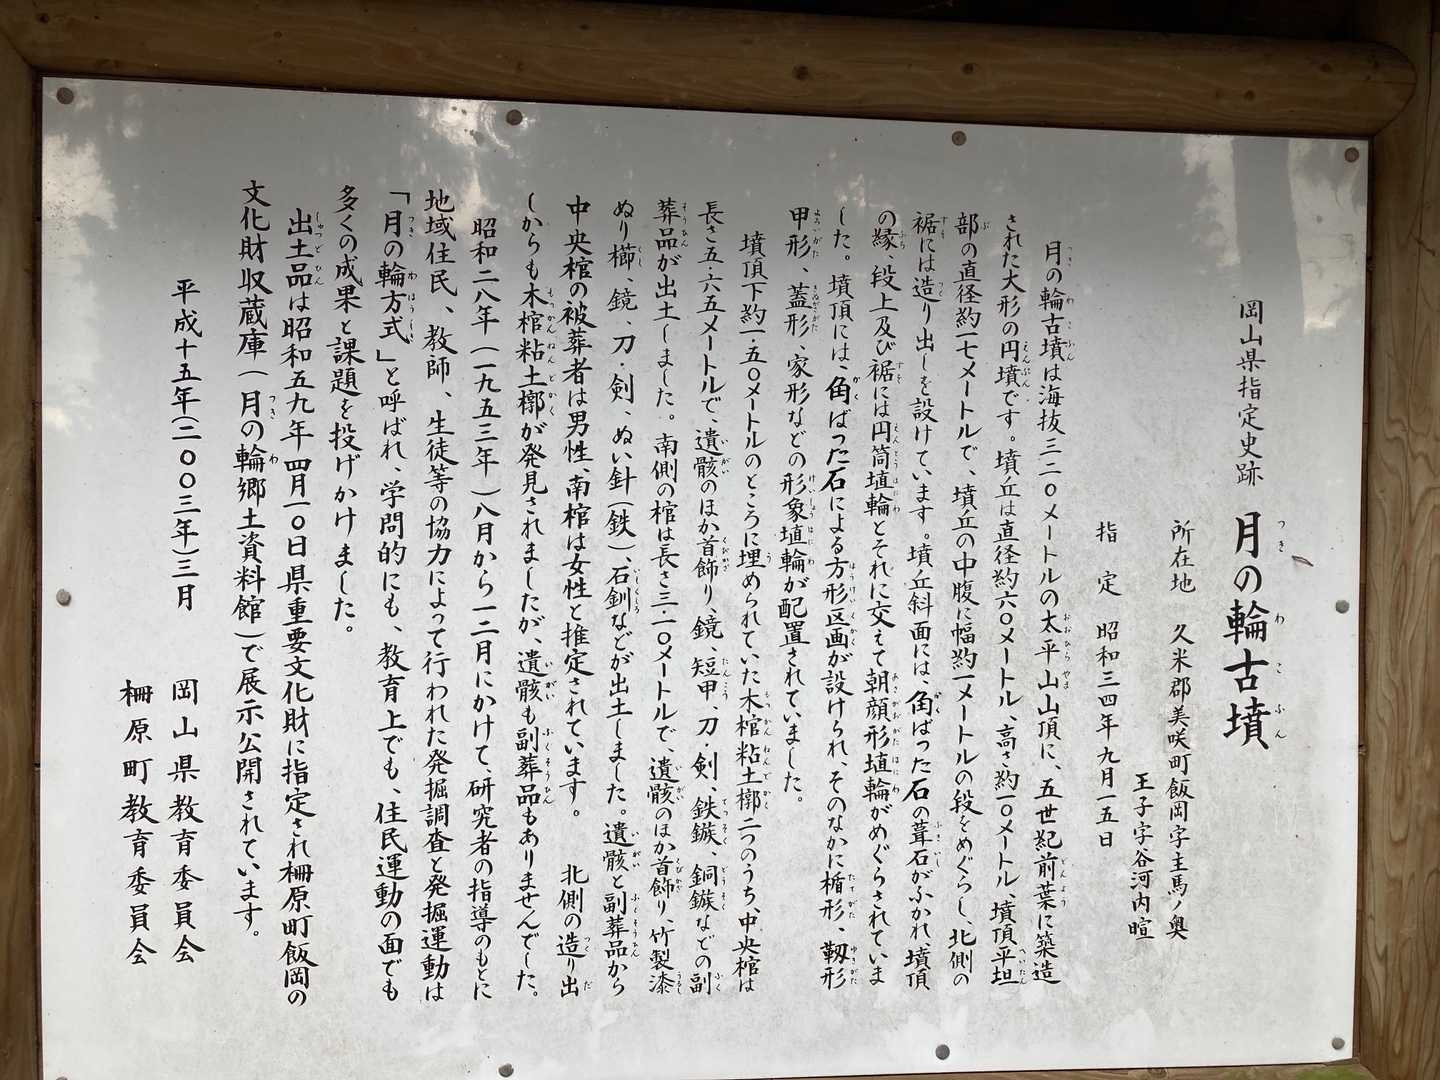 岡山県指定史跡　月の輪古墳
所在地　久米郡美咲町飯岡字主馬ノ奥
王子字谷河内喧
指　定　昭和三四年九月一五日
月の輪古墳は海抜三二〇メートルの太平山山頂に、五世紀前葉に築造
された大形の円墳です。墳丘は直径約六〇メートル、高さ約一〇メートル、墳頂平坦
部の直径約一七メートルで、墳丘の中腹に幅約一メートルの段をめぐらし、北側の
裾には造り出しを設けています。墳丘斜面には、角ばった石の葺石がふかれ、墳頂
の縁、段上及び裾には円筒埴輪とそれに交えて朝顔形埴輪がめぐらされていま
した。墳頂には、角ばった石による方形区画が設けられ、そのなかに楯形、靱形
甲形、蓋形、家形などの形象埴輪が配置されていました。
墳頂下約一・五〇メートルのところに埋められていた木棺粘土槨二つのうち、中央棺は
長さ五・六五メートルで、遺骸のほか首飾り、鏡、短甲、刀・剣、鉄鏃、銅鏃などの副
葬品が出土しました。南側の棺は長さ三・一〇メートルで、遺骸のほか首飾り、竹製漆
ぬり櫛、鏡、刀・剣、ぬい針(鉄)、石釧などが出土しました。遺骸と副葬品から
中央棺の被葬者は男性、南棺は女性と推定されています。　北側の造り出
しからも木棺粘土槨が発見されましたが、遺骸も副葬品もありませんでした。
昭和二八年(一九五三年)八月から一二月にかけて、研究者の指導のもとに
地域住民、教師、生徒等の協力によって行われた発掘調査と発掘運動は
「月の輪方式」と呼ばれ、学問的にも、教育上でも、住民運動の面でも
多くの成果と課題を投げかけました。
出土品は昭和五九年四月一〇日県重要文化財に指定され柵原町飯岡の
文化財収蔵庫(月の輪郷土資料館)で展示公開されています。
平成十五年(二〇〇三年)三月　岡山県教育委員会
柵原町教育委員会